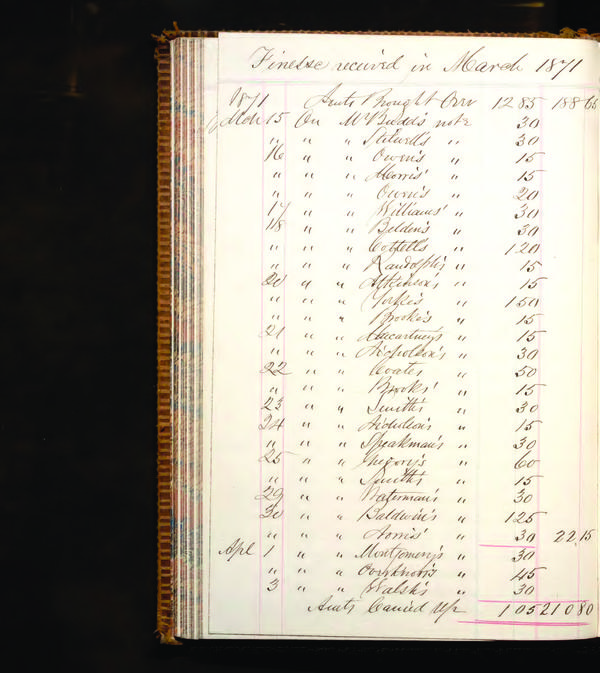 Finesse received in March 1871
1871 Amts Brought Over 12 85 188 65
Mch 15 On Mr Budd's note 30
" " " Stilwell's " 30
16 " " Owen's " 15
" " " Morris' " 15
" " " Owen's " 20
17 " " Williams' " 30
18 " " Belden's " 30
" " " " 1 20
" " " Randolph's " 15
20 " " Atkinson's " 15
" " " Yorke's " 1 50
" " " Brooke's " 15
21 " " Macartney's " 15
" " " Nicholson's " 30
22 " " Coates " 50
" " " Brooks' " 15
23 " " Smith's " 30
24 " " Nicholson's " 15
" " " Speakman's " 30
25 " " Gregory's " 60
" " " Smith's " 15
29 " " Waterman's " 30
30 " " Baldwin's " 1 25
" " " Norris' " 30 22 15
Apl 1 " " Montgomery's " 30
" " " " 45
3 " " Walsh's " 30
Amts Carried Up 1 05 210 80